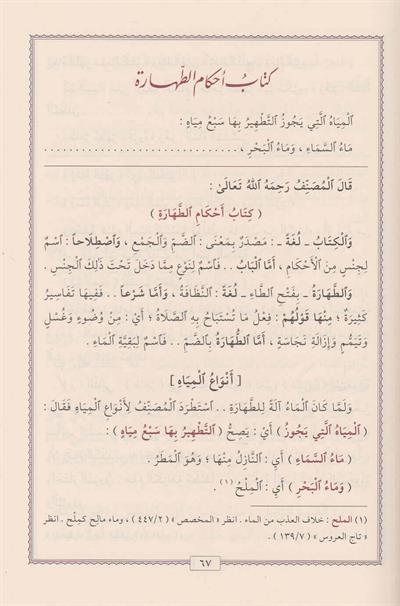 كتاب أحكام الطهارة
الْمِيَاهُ الَّتِي يَجُوزُ التَّطْهِيرُ بِهَا سَبْعُ مِيَاهٍ :
مَاءُ السَّمَاءِ ، وَمَاءُ الْبَحْرِ ، . . . . . . . . . . . . . . . . . . . . . . . . . . . . . .
قَالَ الْمُصَنِّفُ رَحِمَهُ اللهُ تَعَالَىٰ :
( كِتَابُ أَحْكَامِ الطَّهَارَةِ )
وَالْكِتَابُ ـ لُغَةً ـ : مَصْدَرٌ بِمَعْنَى : الضَّمِّ وَالْجَمْعِ ، وَاصْطِلَاحاً : اسْمٌ
لِجِنْسٍ مِنَ الْأَحْكَامِ ، أَمَّا الْبَابُ . . فَاسْمٌ لِنَوْعٍ مِمَّا دَخَلَ تَحْتَ ذٰلِكَ الْجِنْسِ .
وَالطَّهَارَةُ ـ بِفَتْحِ الطَّاءِ ـ لُغَةً : النَّظَافَةُ ، وَأَمَّا شَرْعاً . . فَفِيهَا تَفَاسِيرُ
كَثِيرَةٌ ؛ مِنْهَا قَوْلُهُمْ : فِعْلُ مَا تُسْتَبَاحُ بِهِ الصَّلَاةُ ؛ أَيْ : مِنْ وُضُوءٍ وَغُسْلٍ
وَتَيَمُّمٍ وَإِزَالَةِ نَجَاسَةٍ ، أَمَّا الطُّهَارَةُ بِالضَّمِّ . . فَاسْمٌ لِبَقِيَّةِ الْمَاءِ .
[ أَنْوَاعُ الْمِيَاهِ ]
وَلَمَّا كَانَ الْمَاءُ آلَةً لِلطَّهَارَةِ . . اسْتَطْرَدَ الْمُصَنِّفُ لِأَنْوَاعِ الْمِيَاهِ فَقَالَ :
( الْمِيَاهُ الَّتِي يَجُوزُ ) أَيْ : يَصِحُّ ( التَّطْهِيرُ بِهَا سَبْعُ مِيَاهٍ ) :
( مَاءُ السَّمَاءِ ) أَيِ : النَّازِلُ مِنْهَا ؛ وَهُوَ الْمَطَرُ .
( وَمَاءُ الْبَحْرِ ) أَيِ : الْمِلْحُ (١) .
(١) الملح : خلاف العذب من الماء . انظر « المخصص » ( ٤٤٧/٢ ) ، وماء مالح كملح . انظر
« تاج العروس » ( ١٣٩/٧ ) .
٦٧